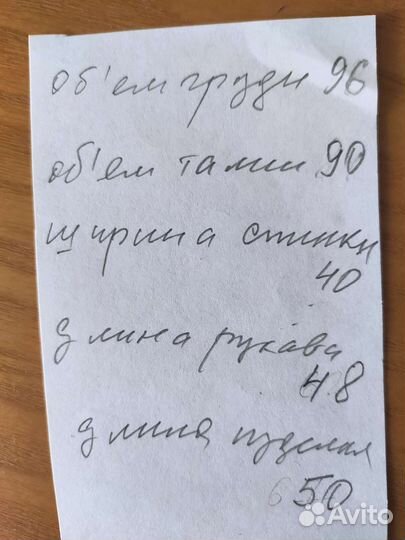 об'ем груди 96
об'ем талии 90
ширина спинки
40
длина рукава
48
длина изделия
50
Avito